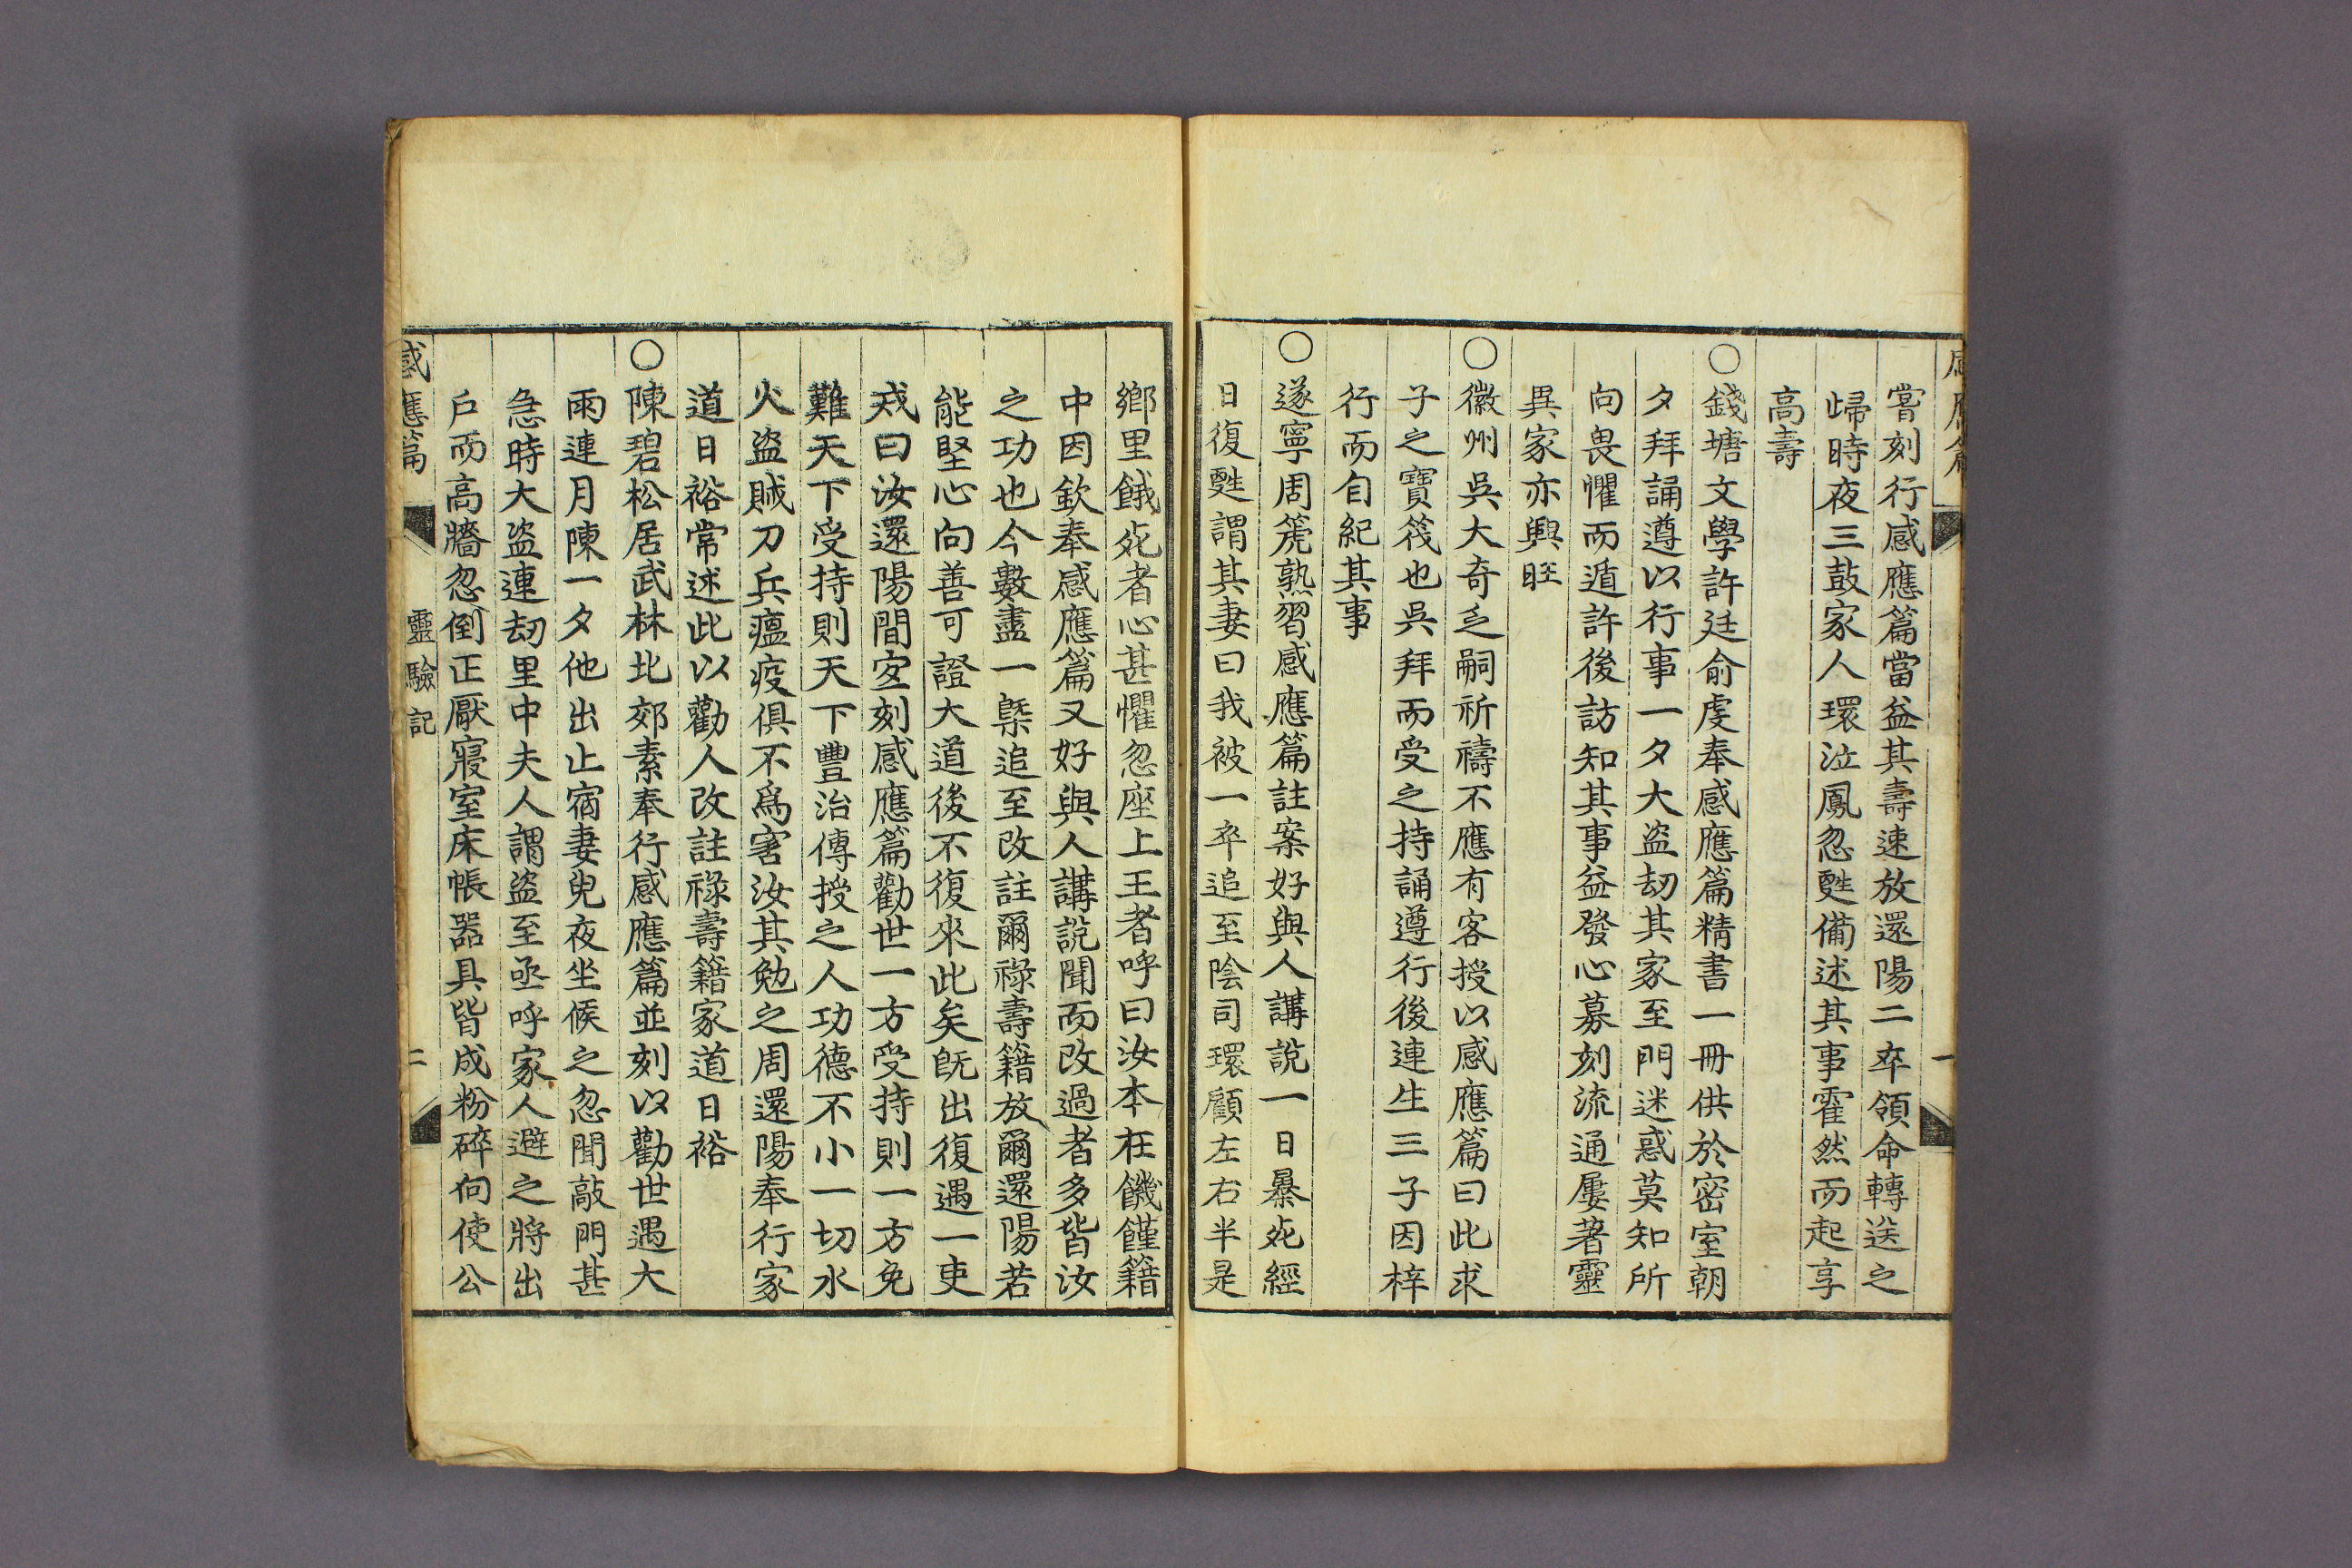 嘗刻行感應篇當益其壽速放還陽二卒領命轉送之
歸時夜三鼓家人環泣鳳忽甦備述其事霍然而起享
高壽
○錢塘文學許廷俞虔奉感應篇精書一冊供於密室朝
夕拜誦遵以行事一夕大盜劫其家至門迷惑莫知所
向畏懼而遁許後訪知其事益發心募刻流通屢著靈
異家亦興旺
○徽州吳大奇乏嗣祈禱不應有客授以感應篇曰此求
子之寶筏也吳拜而受之持誦遵行後連生三子因梓
行而自紀其事
○遂寧周箎熟習感應篇註案好與人講說一日暴死經
日復甦謂其妻曰我被一卒追至陰司環顧左右半是
鄉里餓死者心甚懼忽座上王者呼曰汝本在饑饉籍
中因欽奉感應篇又好與人講說聞而改過者多皆汝
之功也今數盡一槩追至改註爾祿壽籍放爾還陽若
能堅心向善可證大道後不復來此矣旣出復遇一吏
戒曰汝還陽間宜刻感應篇勸世一方受持則一方免
難天下受持則天下豐治傳授之人功德不小一切水
火盜賊刀兵瘟疫俱不爲害汝其勉之周還陽奉行家
道日裕常述此以勸人改註祿壽籍家道日裕
○陳碧松居武林北郊素奉行感應篇並刻以勸世遇大
雨連月陳一夕他出止宿妻兒夜坐候之忽聞敲門甚
急時大盜連劫里中夫人謂盜至亟呼家人避之將出
戶而高牆忽倒正厭寢室床帳器具皆成粉碎向使公
感應篇
靈驗記
二